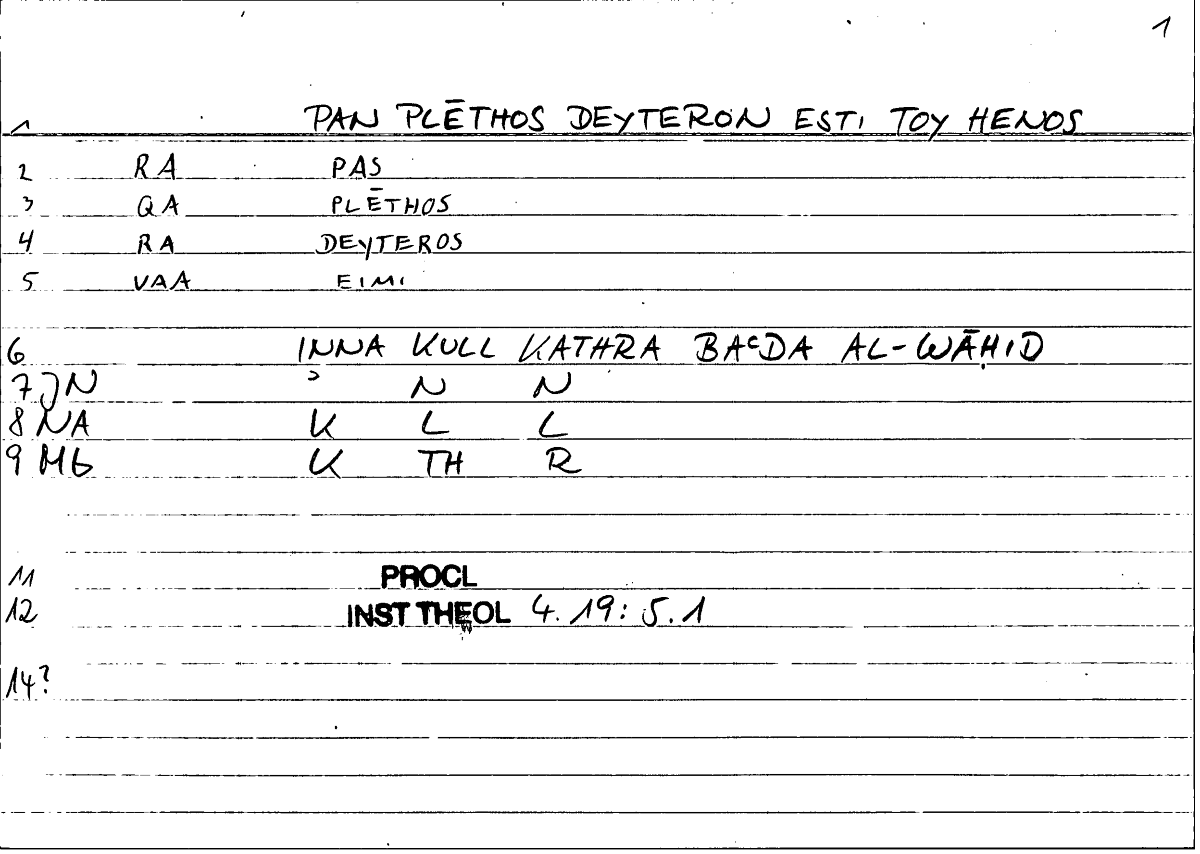 1
1 PAN PLĒTHOS DEYTERON ESTI TOY HENOS
2 RA PAS
3 QA PLĒTHOS
4 RA DEYTEROS
5 VAA EIMI
6 INNA KULL KATHRA BAʿDA AL-WĀḤID
7 JN ʾ N N
8 NA K L L
9 Mb K TH R
11 PROCL
12 INST THEOL 4.19:5.1
14?